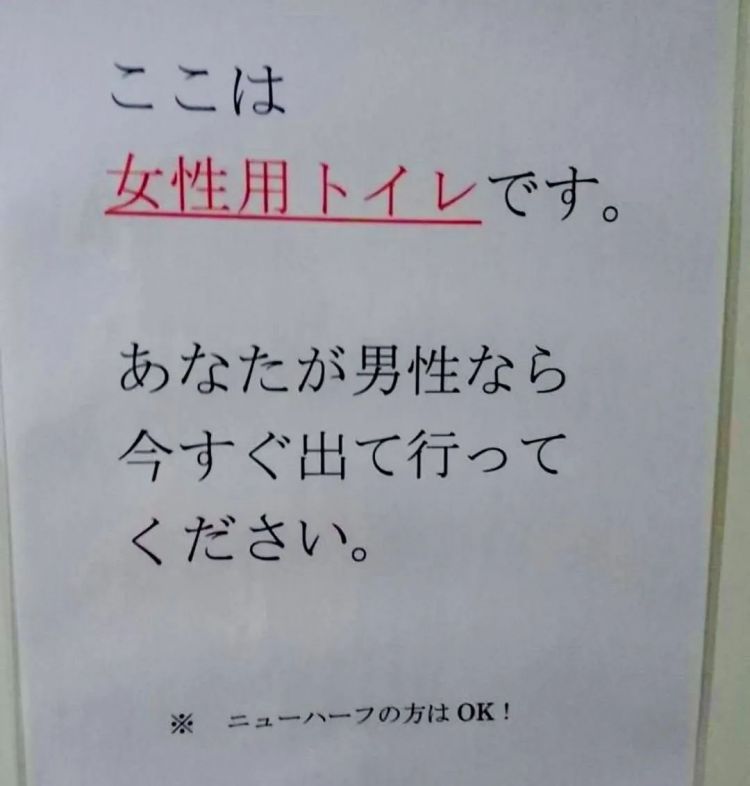 ここは
女性用トイレです。
あなたが男性なら
今すぐ出て行って
ください。
※　ニューハーフの方は OK！